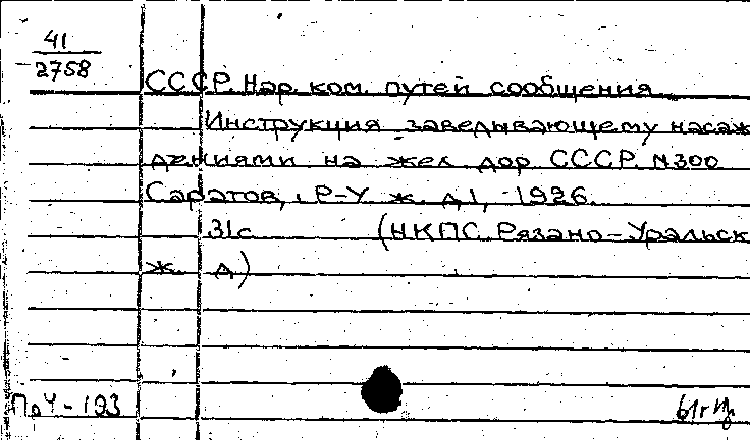 41
2758
СССР. Нар. ком. путей сообщения
Инструкция заведывающему насаж
дениями на жел дор СССР. N300
Саратов, Р-У ж. д., 1926.
31с (НКПС. Рязано-Уральск
ж. д)
ПоЧ-193